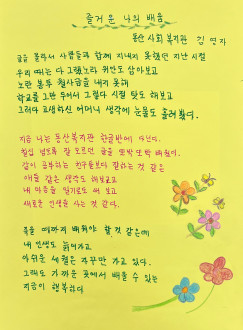 즐거운 나의 배움
동산 사회 복지관 김 연 자
글을 몰라서 사람들과 함께 지내지 못했던 지난 시절
우리 때는 다 그랬노라 위안도 삼아보고
노란 봉투 월사금을 내지 못해
학교를 그만 두어서 그렇다 시절 탓도 해보고
그러다 고생하신 어머니 생각에 눈물도 흘려봤다.
지금 나는 동산복지관 한글반에 다닌다.
칠십 넘도록 잘 모르던 글을 또박 또박 배웠다.
같이 공부하는 친구들보다 잘하는 것 같은
애들 같은 생각도 해보고
내 마음을 일기로도 써 보고
새로운 인생을 사는 것 같다.
죽을 때까지 배워야 할 것 같은데
내 인생도 늙어가고
아쉬운 세월은 자꾸만 가고 있다.
그래도 가까운 곳에서 배울 수 있는
지금이 행복하다